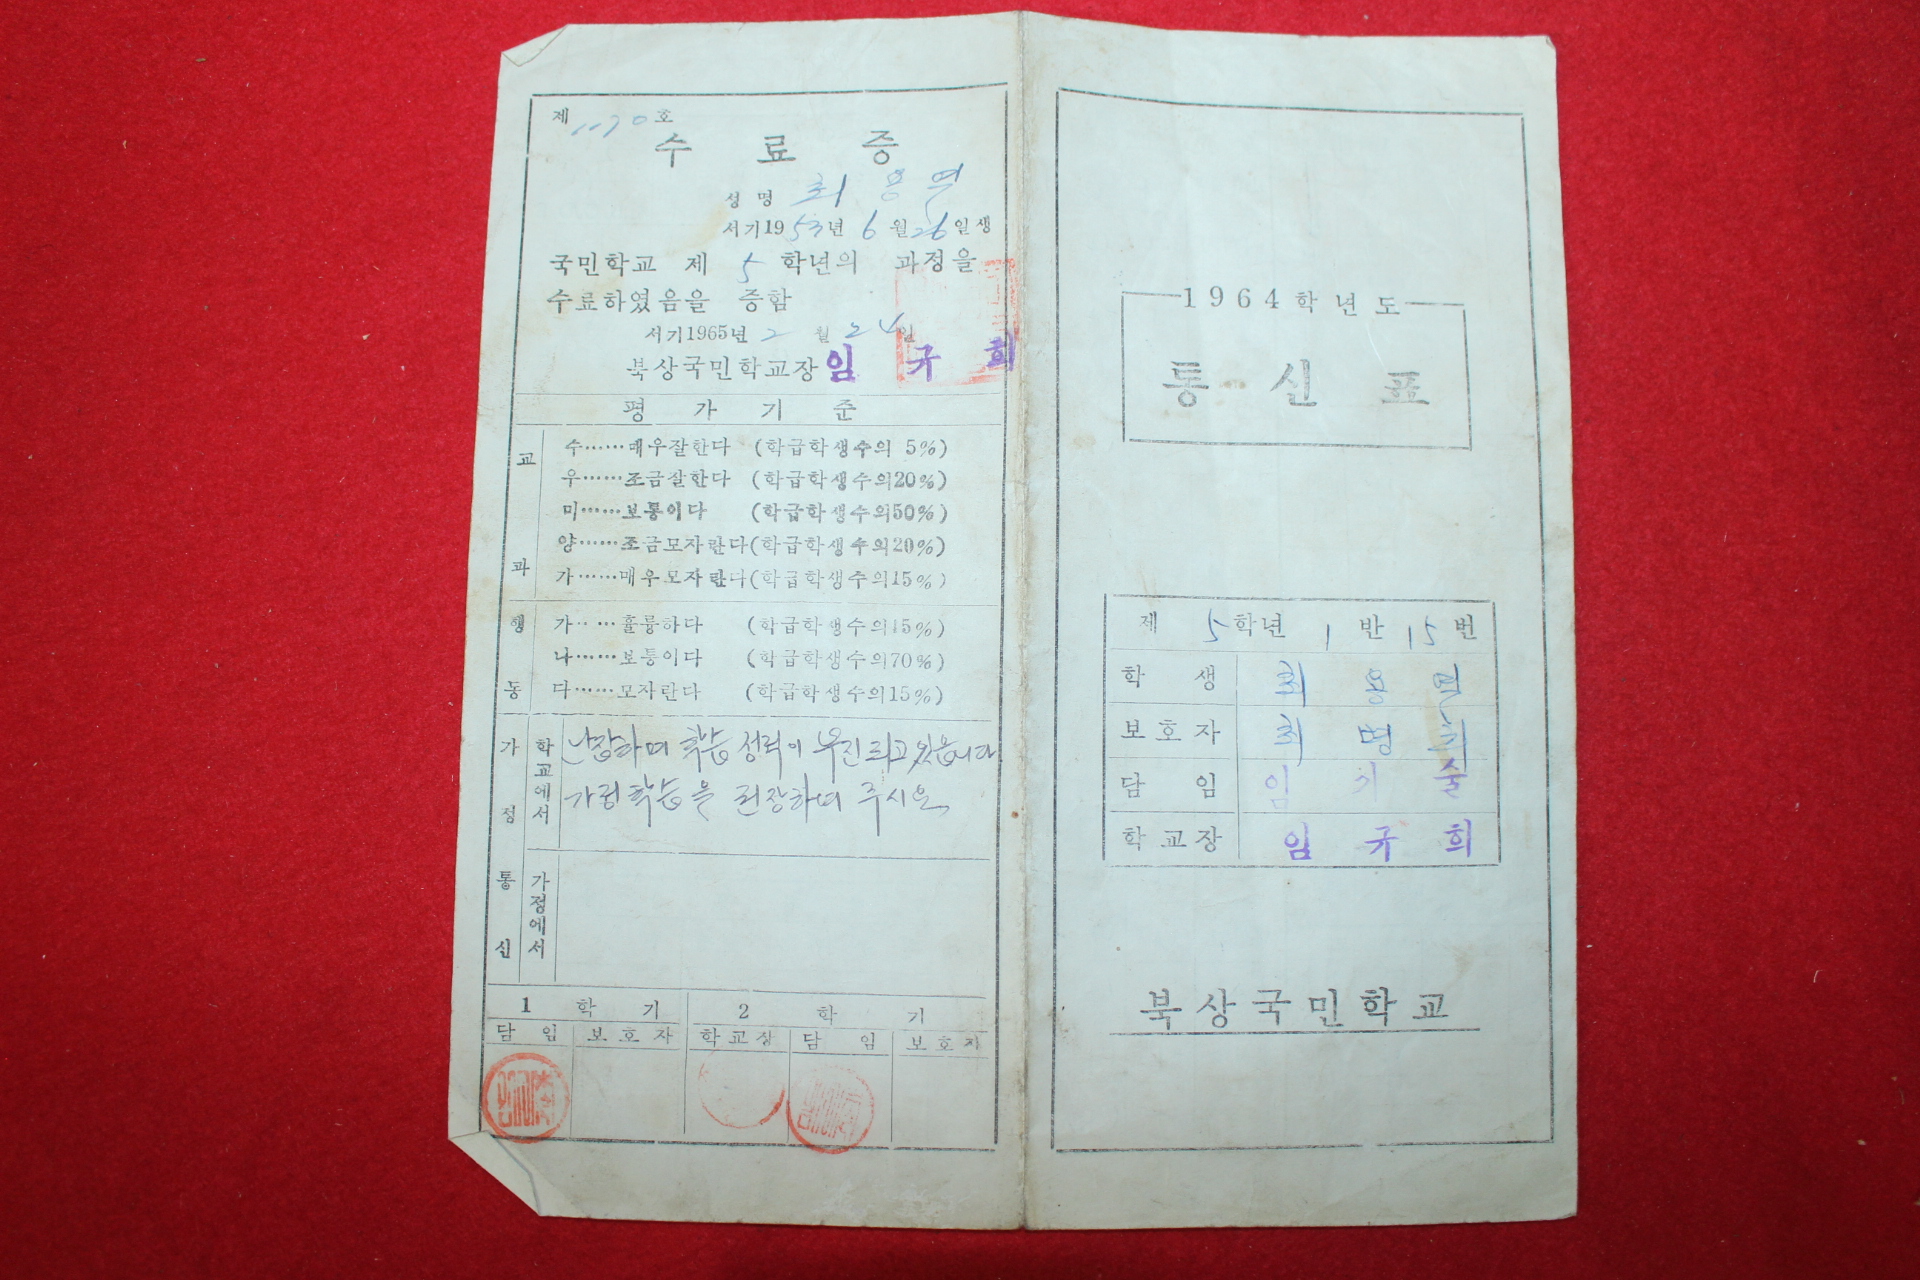 제 1170 호
수 료 증
성 명 최 용
서기 1953년 6월 26일생
국민학교 제 5 학년의 과정을
수료하였음을 증함
서기1965년 2월 24일
북상국민학교장 임 규 희
평 가 기 준
교 과
수……매우잘한다 (학급학생수의 5%)
우……조금잘한다 (학급학생수의20%)
미……보통이다 (학급학생수의50%)
양……조금모자란다(학급학생수의20%)
가……매우모자란다(학급학생수의15%)
행 동
가……훌륭하다 (학급학생수의15%)
나……보통이다 (학급학생수의70%)
다……모자란다 (학급학생수의15%)
가 정 통 신
학교에서
난장하며 학습 성적이 부진되고 있읍니다
가정학습을 권장하여 주시오.
가정에서
1 학 기 2 학 기
담 임 보호자 학교장 담 임 보호자
1964학년도
통 신 표
제 5학년 1 반 15번
학 생 최 용
보호자 최 병
담 임 임 기 술
학교장 임 규 희
북상국민학교